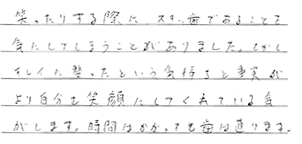 笑ったりする際に、スキッ歯であることを
気にしてしまうことがありました。しかし
キレイに整ったという気持ちと事実が
より自分を笑顔にしてくれている気
がします。時間はかかっても歯は直ります。